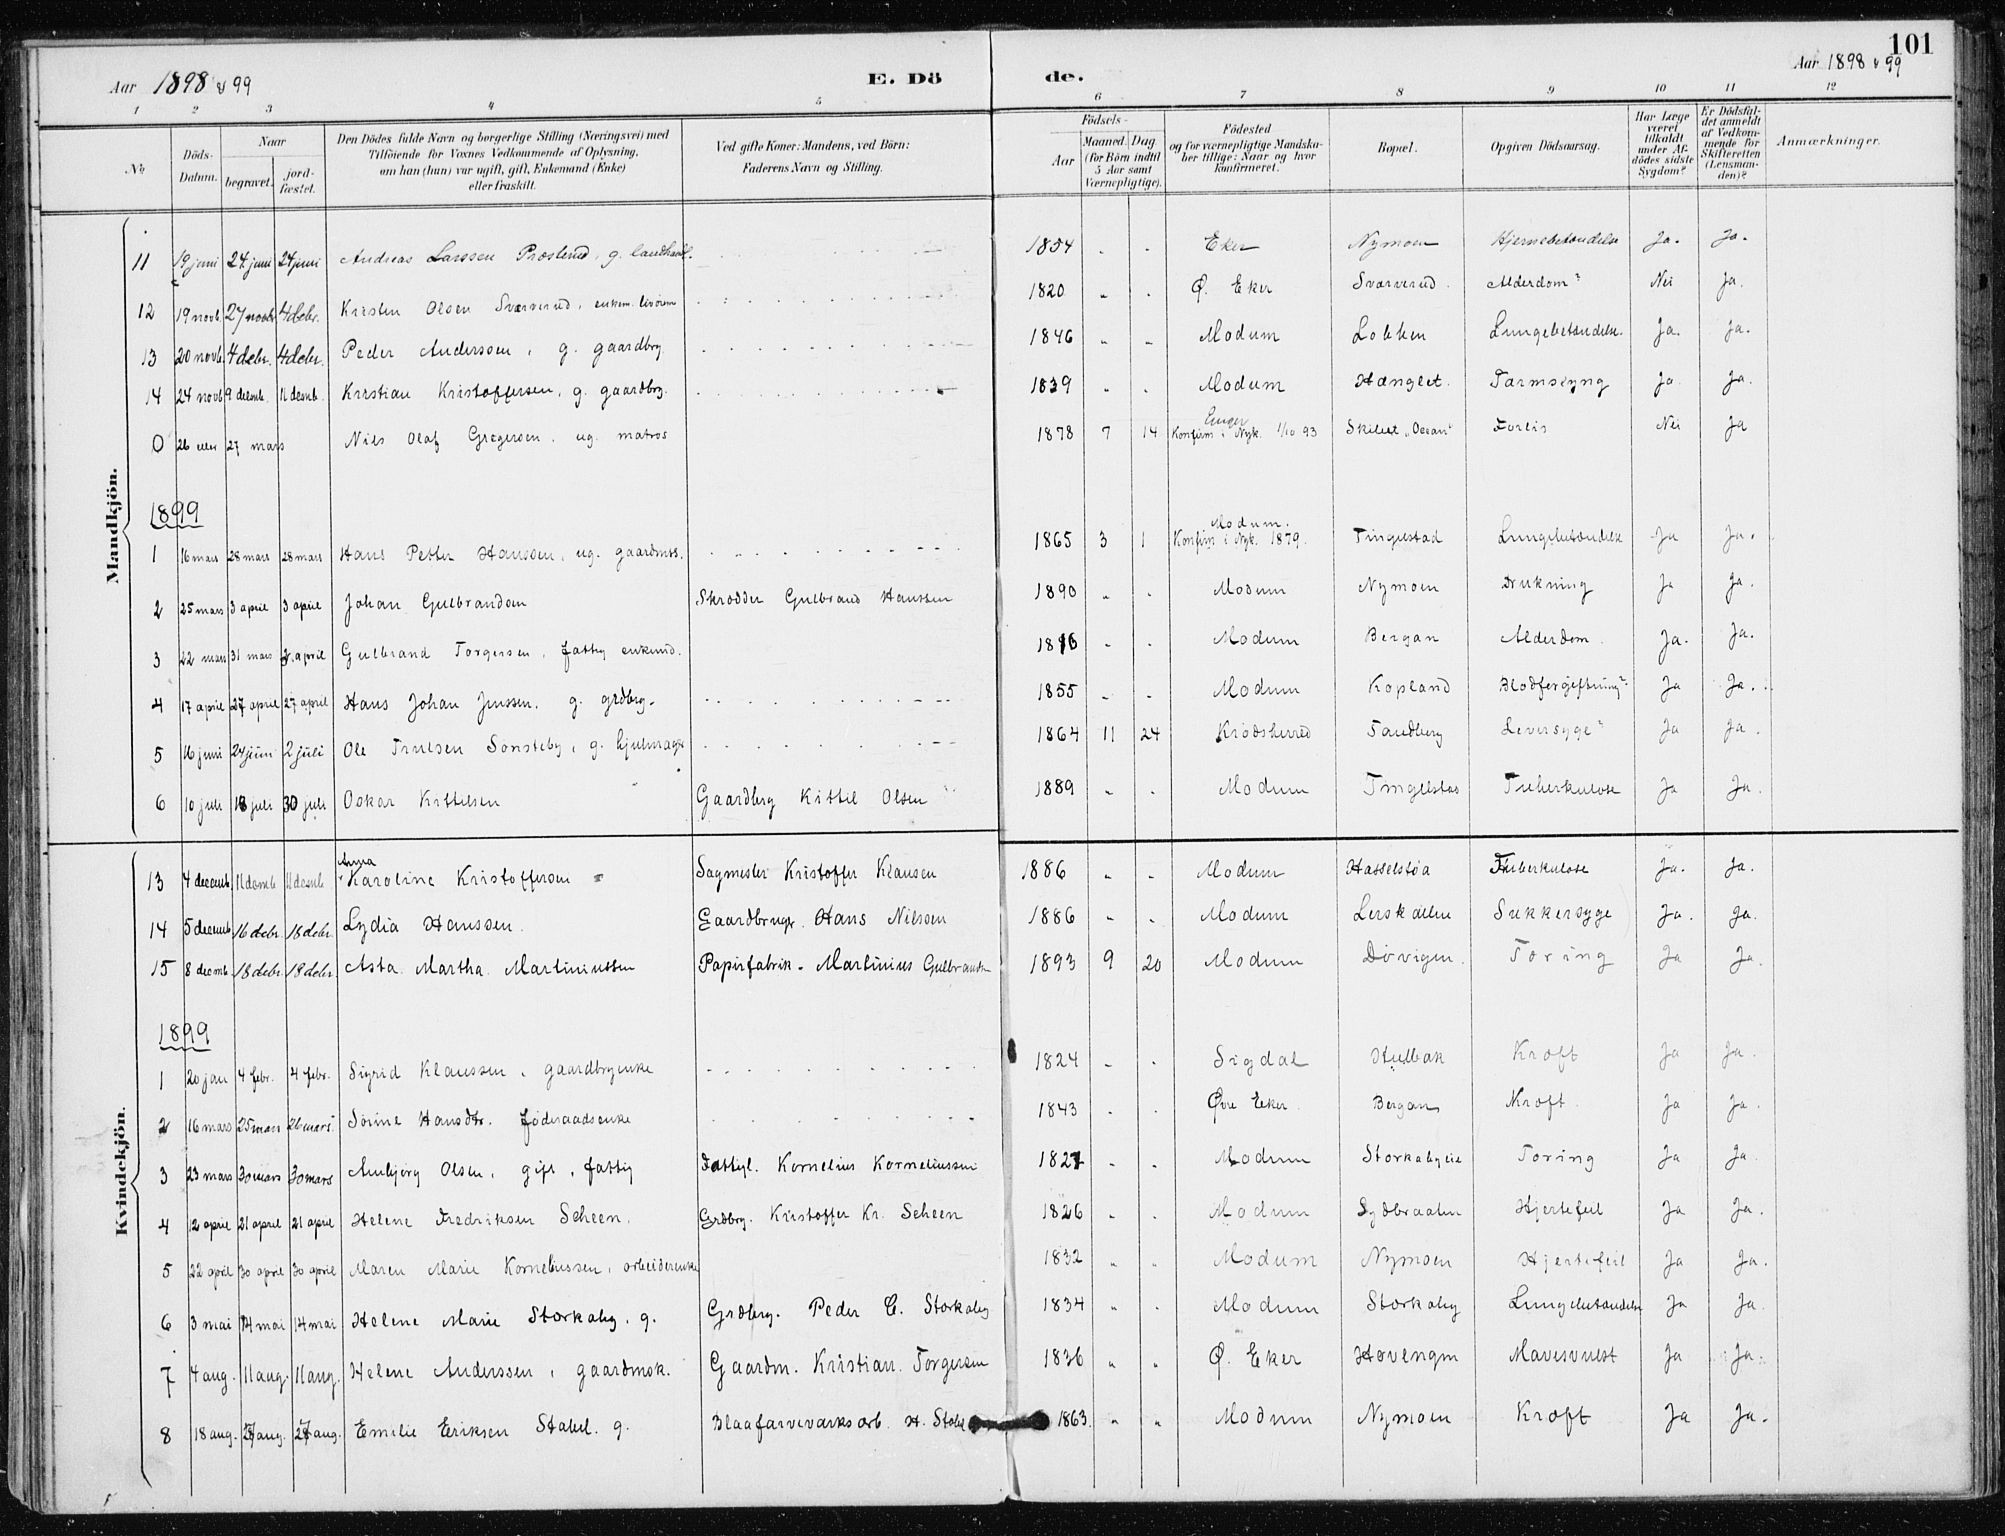 101
Aar 1898 & 99 E. Dö de. Aar 1898 & 99
1 2 3 4 5 6 7 8 9 10 11 12
No
Döds-Datum.
Naar
begravet.
jord-fæstet.
Den Dödes fulde Navn og borgerlige Stilling (Næringsvei) med
Tilföiende for Voxnes Vedkommende af Oplysning,
om han (hun) var ugift, gift, Enkemand (Enke)
eller fraskilt.
Ved gifte Koner: Mandens, ved Börn:
Faderens Navn og Stilling.
Födsels-
Aar
Maaned. Dag
(for Börn indtil
5 Aar samt
Værnepligtige).
Födested
og for værnepligtige Mandska-
ber tillige: Naar og hvor
konfirmeret.
Bopæl.
Opgiven Dödsaarsag.
Har Læge
været
tilkaldt
under Af-
dödes sidste
Sygdom?
Er Dödsfal-
det anmeldt
af Vedkom-
mende for
Skifteretten
(Lensman-
den)?
Anmærkninger.
Mandkjön.
11 19 juni 24 juni 24 juni Andreas Larssen Præsterud, g. landhandl. 1854 " " Eker Nymoen Hjernebetændelse Ja. Ja.
12 19 novb. 27 novb. 4 debr. Kristen Olsen Sværverud, enkem. livörem 1820 " " Ø. Eker Sværverud. Alderdom? Nei Ja.
13 20 novb. 4 debr. 4 debr. Peder Anderssen, g. gaardbrg. 1846 " " Modum Løkken Lungebetændelse. Ja. Ja.
14 24 novb 9 decmb. 11 decmb. Kristian Kristoffersen, g. gaardbrg. 1839 " " Modum Hænglet. Tarmslyng Ja. Ja.
0 26 eller 27 mars Nils Olaf Gregersen, ug. matros 1878 7 14 Enger Konfirm i Nyk. 1/10 93 Skibet „Ocean" Forlis Nei Ja
1899
1 16 mars 28 mars 28 mars Hans Petter Hanssen, ug. gaardmts. 1865 3 1 Modum. Konfirm i Nyk. 1879. Tingelstad Lungebetændelse Ja Ja.
2 25 mars 3 april 3 april Johan Gulbrandsen Skrædder Gulbrand Hanssen 1890 " " Modum Nymoen Drukning Ja Ja.
3 22 mars 31 mars 2. april Gulbrand Torgersen, fattig enkemd. 1816 " " Modum Bergan Alderdom. Ja. Ja.
4 17 april 27 april 27 april Hans Johan Jenssen, g. grdbrg. 1855 " " Modum Kopland Blodforgiftning? Ja Ja.
5 16 juni 24 juni 2 juli Ole Truelsen Sønsteby, g. hjulmager 1864 11 24 Krødsherred Tandberg Leversyge? Ja Ja.
6 10 juli 18 juli 30 juli Oskar Kittelsen Gaardbrg Kittil Olsen 1889 " " Modum Tingelstad Tuberkulose Ja Ja.
Kvindekjön.
13 4 decemb 11 decmb 11 decmb Anna Karoline Kristoffersen Sagmester Kristoffer Klausen 1886 " " Modum Hasselstøa Tuberkulose Ja. Ja.
14 5 decemb 16 debr. 18 debr. Lydia Hanssen. Gaardbrugr. Hans Nilsen 1886 " " Modum Lerskallen Sukkersyge Ja. Ja.
15 8 decmb. 18 debr. 18 debr Asta Martha Martiniussen Papirfabrik. Martinius Gulbrandsn 1893 9 20 Modum Døvigen. Tæring Ja Ja.
1899
1 20 jan 4 febr. 4 febr. Sigrid Klaussen, gaardbrgenke 1824 " " Sigdal Hulbak Kræft Ja Ja.
2 16 mars 25 mars 26 mars. Sørine Hansdtr. føderaadsenke 1843 " " Øvre Eker. Bergan Kræft. Ja Ja.
3 23 mars 30 mars 30 mars Anbjørg Olsen, gift, fattig Fattigl. Kornelius Korneliussen 1827 " " Modum Storkabyeie Tæring Ja Ja.
4 12 april 21 april 21 april Helene Fredriksen Scheen. Grdbrg. Kristoffer Kr. Scheen 1826 " " Modum Sydbraaten Hjertefeil Ja Ja.
5 22 april 30 april 30 april Maren Marie Korneliussen, arbeiderenke 1832 " " Modum Nymoen Hjertefeil Ja Ja.
6 3 mai 14 mai 14 mai Helene Marie Storkaby. g. Grdbrg. Peder C. Storkaby 1834 " " Modum Storkaby Lungebetændelse Ja Ja.
7 4 aug. 11 aug. 11 aug. Helene Anderssen, gaardmsk. Gaardm. Kristian Torgersen 1836 " " Ø. Eker Hovengen Mavesvulst Ja Ja.
8 18 aug. 27 aug. 27 aug. Emilie Eriksen Stabel. g. Blaafarveværksarb. H. Stabel 1863. " " Modum Nymoen Kræft Ja Ja.